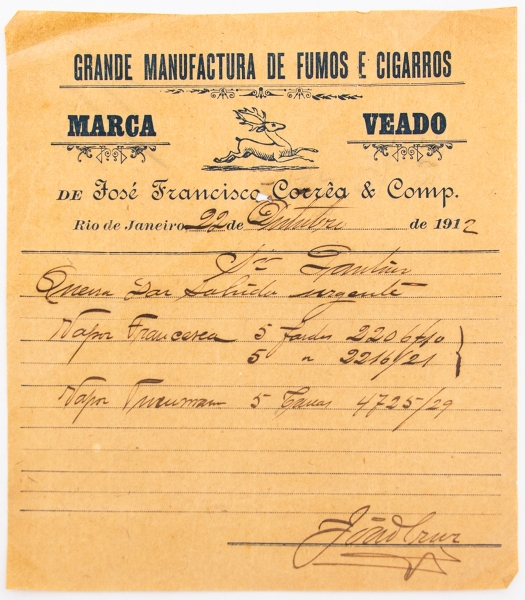 GRANDE MANUFACTURA DE FUMOS E CIGARROS
MARCA VEADO
DE José Francisco Corrêa & Comp.
Rio de Janeiro 22 de Outubro de 1912
Snr
Queira Dar Sahida urgente
Vapor Francesca 5 fardos 2206/10
5 " 2216/21
Vapor 5 4725/29
João Cruz